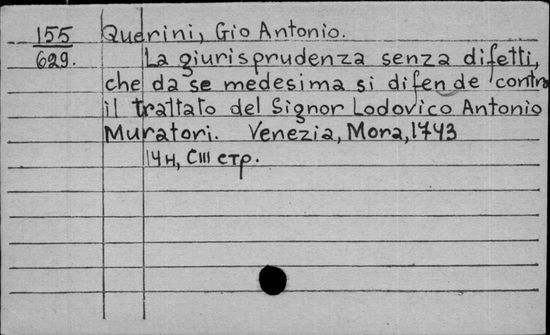 155 Querini, Gio Antonio.
629. La giurisprudenza senza difetti,
che da se medesima si difende contro
il trattato del Signor Lodovico Antonio
Muratori. Venezia, Mora, 1743
14н, CIII стр.